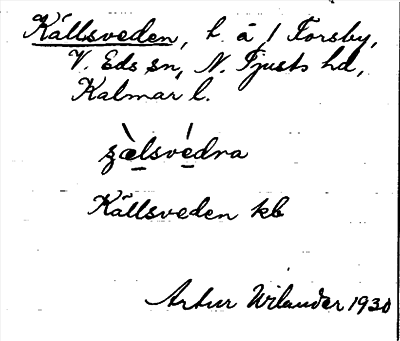 Källsveden, l. å / Forsby,
V. Eds sn, N. Tjusts hd,
Kalmar l.
sæ̀lsvédna
Källsveden kb
Artur Wilander 1930